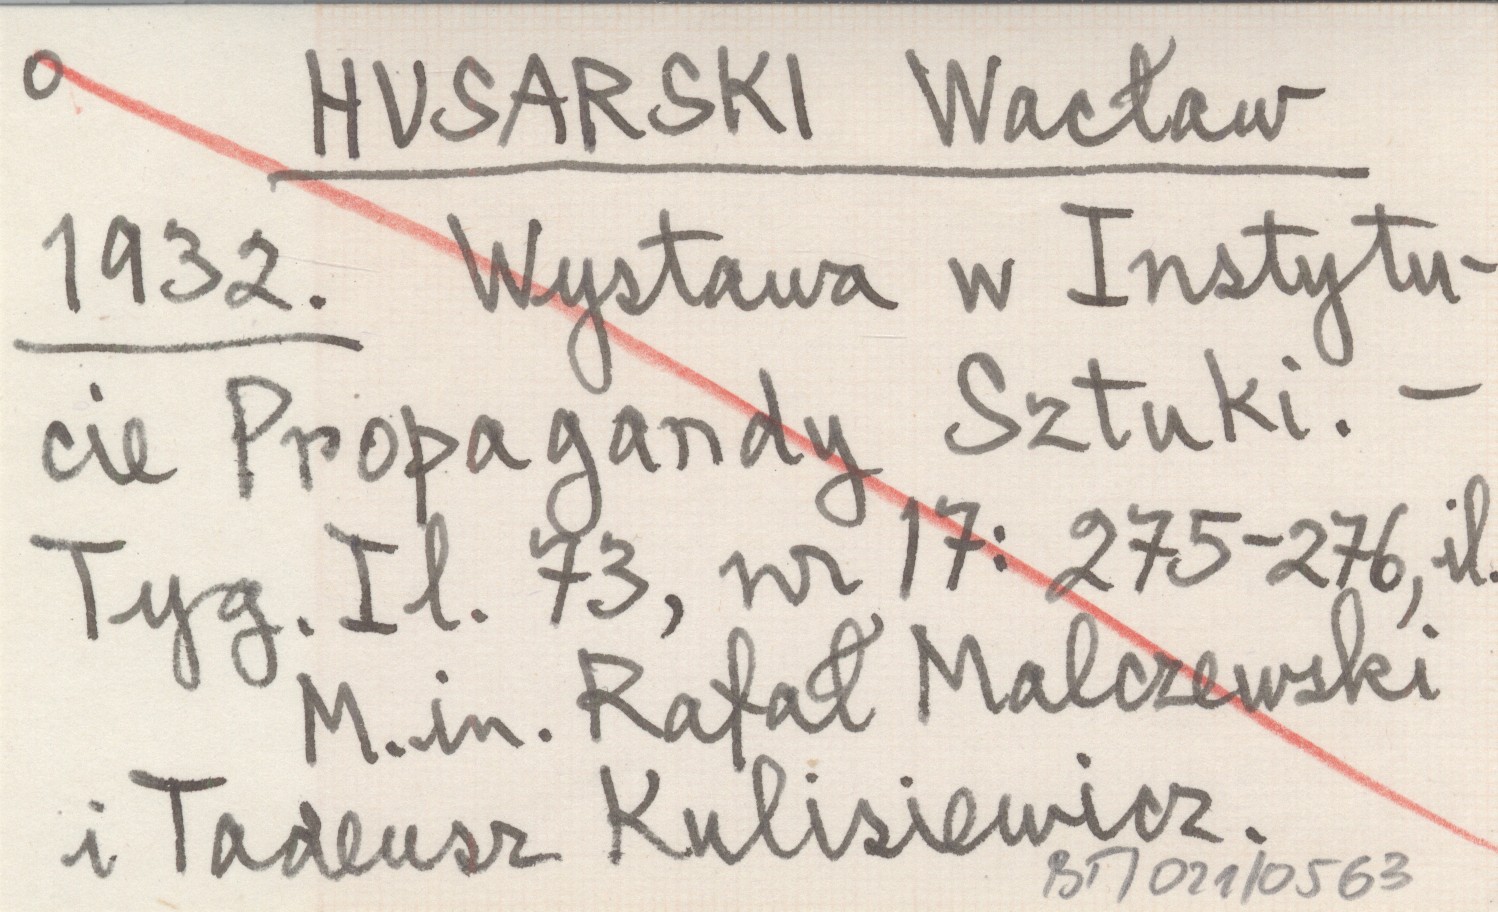 o HUSARSKI Wacław
1932. Wystawa w Instytu-
cie Propagandy Sztuki. –
Tyg. Il. 73, nr 17: 275-276, il.
M.in. Rafał Malczewski
i Tadeusz Kulisiewicz.
BT/021/0563